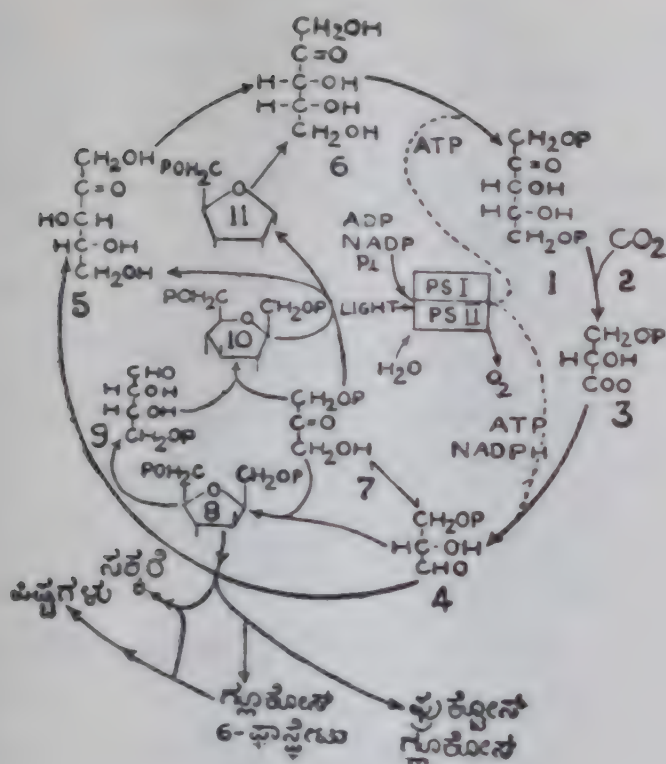 CH₂OH
C=O
H-C-OH
H-C-OH
CH₂OH
6
ATP
CH₂OP
C=O
H C OH
H-C-OH
CH₂OP
1
CO₂
2
CH₂OP
H C OH
COO
3
ATP
NADPH
CH₂OH
C=O
HO C H
H-C-OH
CH₂OH
5
POH₂C
O
11
ADP
NADP
Pi
LIGHT
PS I
PS II
H₂O
O₂
POH₂C
CH₂OP
O
10
CHO
H C OH
H C OH
CH₂OP
9
CH₂OP
C=O
CH₂OH
7
POH₂C
CH₂OP
O
8
CH₂OP
H C-OH
CHO
4
ಸಕ್ಕರೆ
ಪಿಷ್ಟಗಳು
ಗ್ಲೂಕೋಸ್
6-ಫಾಸ್ಫೇಟು
ಫ್ರುಕ್ಟೋಸ್
ಗ್ಲೂಕೋಸ್